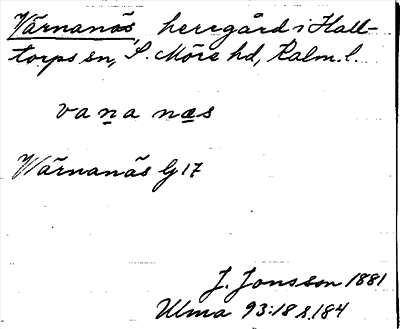 Värnanäs, herrgård i Hall-
torps sn, S. Möre hd, Kalm. l.
vaṉa næ̱s
Wärnanäs G 17
J. Jonsson 1881
Ulma 93:18 s. 184